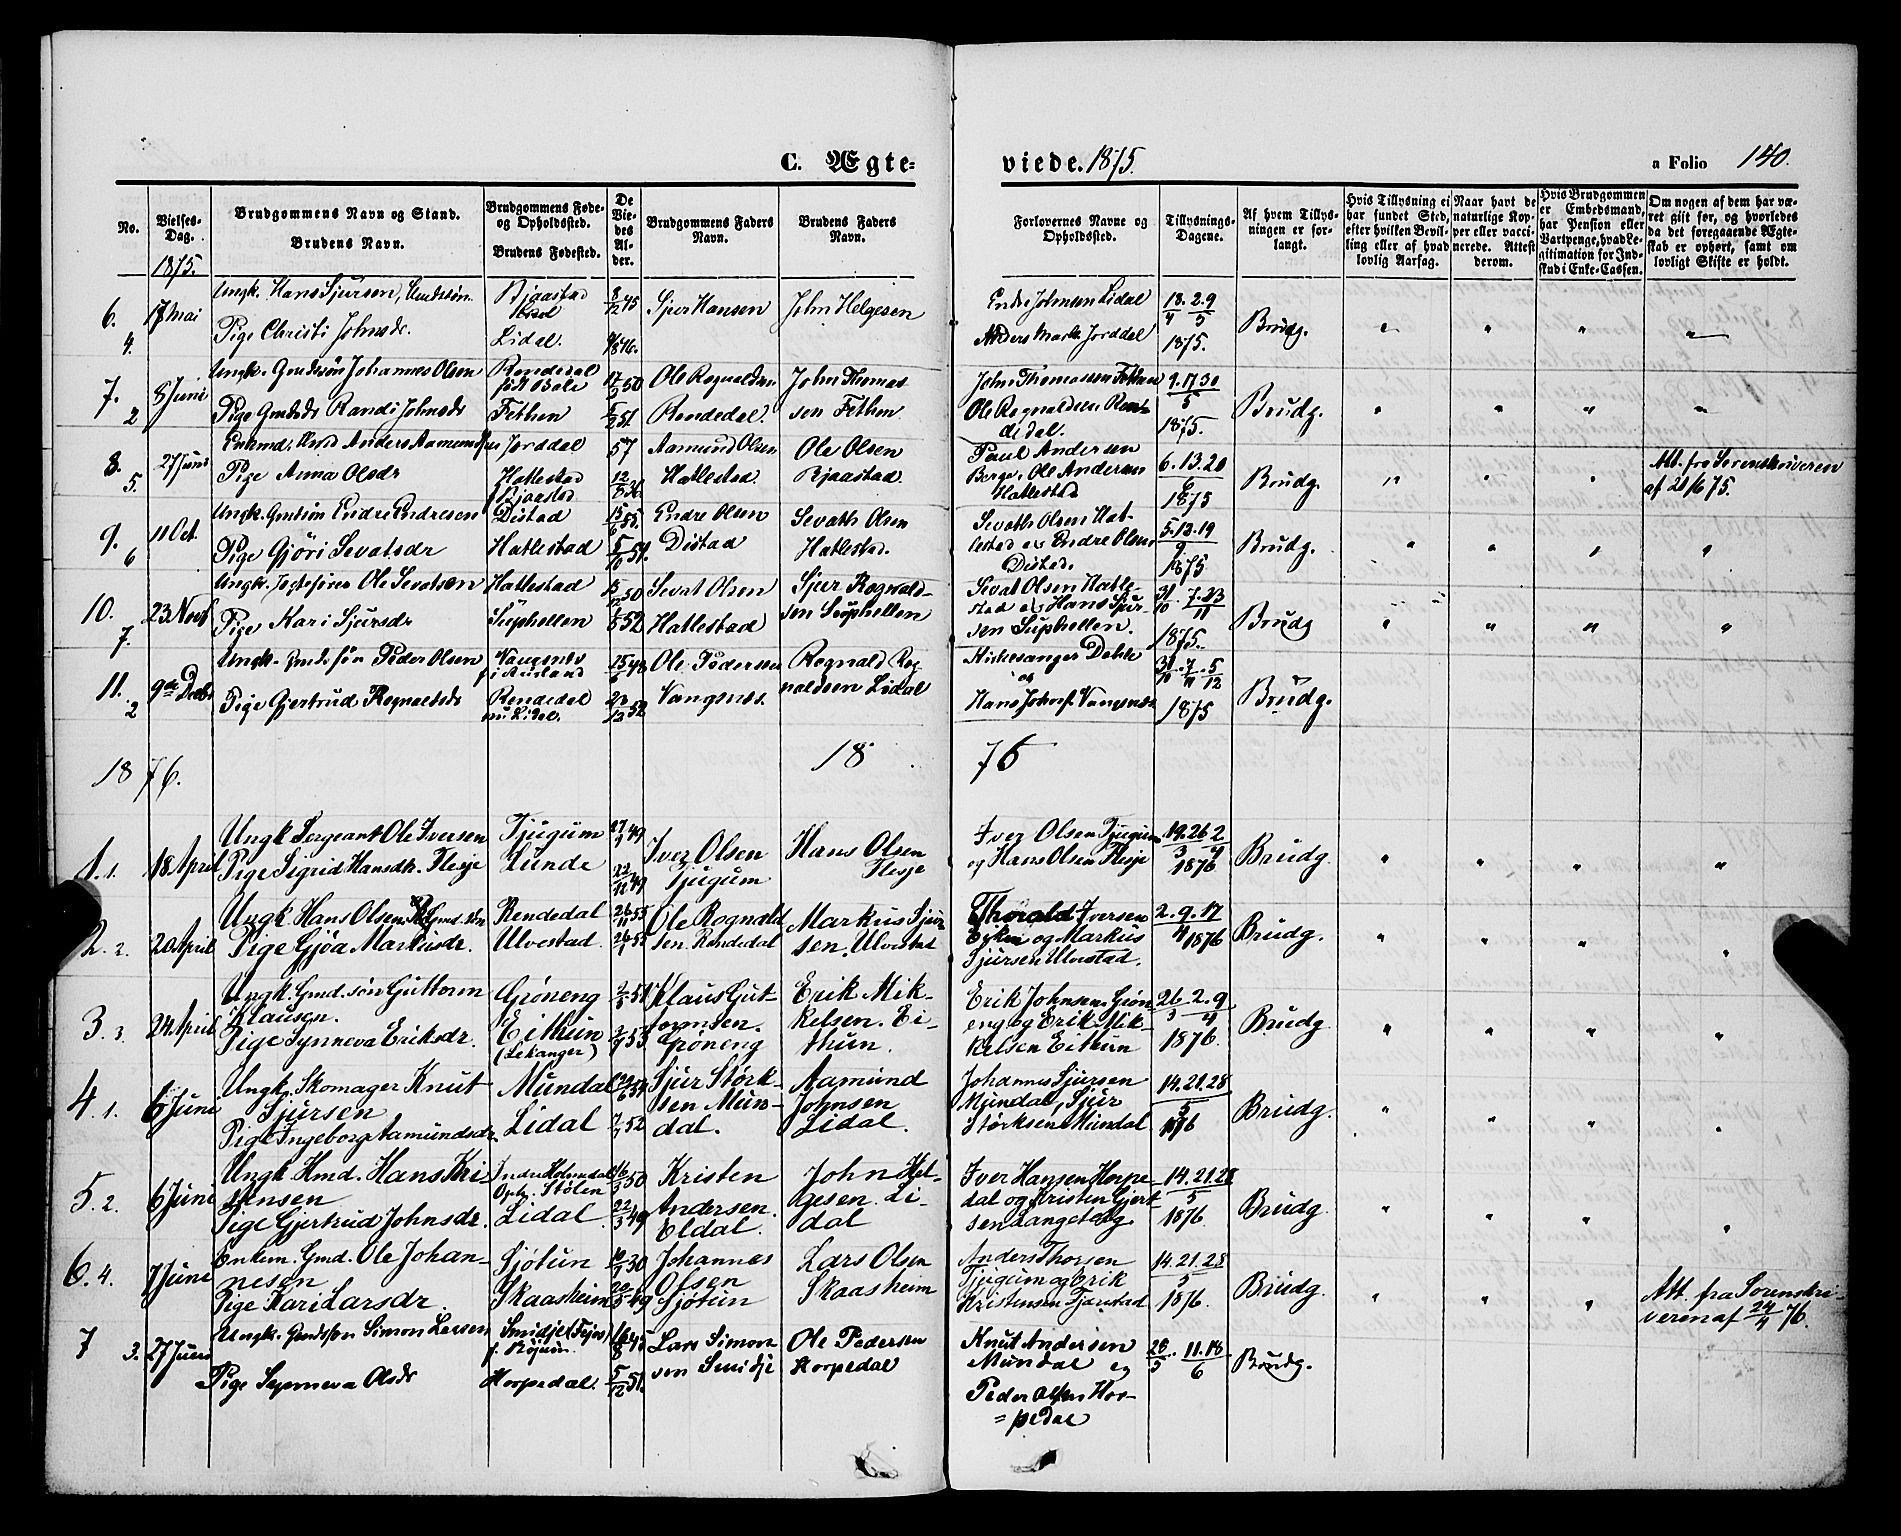 C. Ægte-
viede. 1875.
a Folio 140.
No.
Vielses-Dag.
1875.
Brudgommens Navn og Stand.
Brudens Navn.
Brudgommens Føde- og Opholdssted.
Brudens Fødested.
De Viedes Alder.
Brudgommens Faders Navn.
Brudens Faders Navn.
Forlovernes Navne og Opholdssted.
Tillysnings-Dagene.
Af hvem Tillysningen er forlangt.
Hvis Tillysning ei har fundet Sted, efter hvilken Bevilling eller af hvad lovlig Aarsag.
Naar havt de naturlige Kopper eller vaccinerede. Attest derom.
Hvis Brudgommen er Embedsmand, har Pension eller Vartpenge, hvad Legitimation for Indskud i Enke-Cassen.
Om nogen af dem har været gift før, og hvorledes da det foregaaende Ægteskab er ophørt, samt om lovligt Skifte er holdt.
6. 4. 17 Mai
Ungk. Hans Sjursen,
Pige Christi Johnsdr.
Bjaastad
Lidal.
Sjur Hansen
John Helgesen
Endre Johnsen Lidal
Jorddal
18. 2. 9
4 5
1875.
Brudg.
7. 2 8 Juni
Ungk. Gmdssøn Johannes Olsen
Pige Gmdsdr Randi Johnsdr
Rendedal
Fethen
17/3 50
Ole Rognaldsen
Rendedal.
John Thomas
sen Fethen
John Thomassen Fethen
Ole Rognaldsen Ren-
dedal.
9. 17. 30
5
1875.
Brudg.
8. 5. 27 Juni
Anders Aamundsen
Pige Anna Olsdr
Jorddal
Hatlestad
f. Bjaastad
57
12/8 36
Aamund Olsen
Hatlestad.
Ole Olsen
Bjaastad.
Paul Andersen
Berge, Ole Andersen
Hatlestad
6. 13. 20
6
1875
Brudg.
Att. fra Sorenskriveren
af 21/6 75.
9. 6 11 Oct.
Ungk. Gmdssøn Endre Endresen
Pige Gjöri Sevatsdr
Distad
Hatlestad
5/10 51.
Endre Olsen
Distad
Sevath Olsen
Hatlestad.
Sevath Olsen Hat-
lestad og Endre Olsen
Distad.
5. 12. 19
9
1875
Brudg.
10. 7. 23 Novb
Ungk. Ole Sevatsen
Pige Kari Sjursdr
Hatlestad
Suphellen
50
52
Sevat Olsen
Hatlestad
Sjur Rognald-
sen Suphellen
Sevat Olsen Hatle-
stad og Hans Sjur-
sen Suphellen.
31/10. 7. 23/11
1875.
Brudg
11. 2 9de Decbr
Ungk. Gmdssøn Peder Olsen
Pige Gjertrud Rognaldsdr
Vangsnes
Rendedal
nu Lidal.
Ole Pedersen
Vangsnæs.
Rognald Rog
naldsen Lidal
Kirkesanger Dahle
og
Hans Johnss. Vangsnæs
31/10. 7/11. 5/12
1875
Brudg.
1876.
18 76
1. 1. 18 April
Ungk Sergeant Ole Iversen
Pige Sigrid Hansdtr. Flesje
Tjugum
Lunde
49
22/12 49
Iver Olsen
Tjugum
Hans Olsen
Flesje
Iver Olsen Tjugum
og Hans Olsen Flesje
19. 26 2
3 4
1876
Brudg.
2. 2. 20 April
Ungk. Hans Olsen Gmd. søn
Pige Gjöa Markusdr.
Rendedal
Ulvestad.
26/11 53
Ole Rognald
sen. Rendedal
Markus Sjur
sen. Ulvestad
Thorald Iversen
og Markus
Sjursen Ulvestad.
2. 9. 17
4 1876
Brudg.
3 3. 24 April
Ungk. Gmd. søn Guttorm
Klausen.
Pige Synneva Eriksdr.
Grøneng
Eithun
(Lekanger)
Klaus Gut-
tormsen.
Grøneng
Erik Mik-
kelsen. Ei-
thun.
Erik Johnsen Grøn
eng og Erik Mik-
kelsen Eithun
26. 2. 9
3 4
1876.
Brudg
4. 1. 6 Juni
Ungk. Skomager Knut
Sjursen
Pige Ingeborg Aamundsdr.
Mundal
Lidal
52
Sjur Størk-
sen Mun-
dal.
Aamund
Johnsen
Lidal.
Johannes Sjursen
Mundal, Sjur
Størksen Mundal
14. 21. 28
5
1876
Brudg.
5. 2. 6 Juni
Ungk Hmd. Hans Kri
stensen
Pige Gjertrud Johnsdr.
Stølen
Lidal.
16/3 50
22/3 49
Kristen
Andersen.
Eldal.
John Hel-
gesen. Li-
dal
Iver Hansen Horpe-
dal og Kristen Gjert-
sen
14. 21. 28
5
1876.
Brudg
6. 4. 7 Juni
Enkem. Gmd. Ole Johan-
nesen
Pige Kari Larsdr.
Sjøtun
Skaasheim
30
49
Johannes
Olsen
Sjøtun
Lars Olsen
Skaasheim
Anders Thorsen
Tjugum og Erik
Kristensen Tjaustad
14. 21. 28
5
1876.
Brudg.
Att. fra Sorenskri
veren af 24/4 76.
7 3. 27 Juni
Ungk. Gmdssøn Simon Larsen
Pige Synneva Olsdr
Smidje (Fejos)
Horpedal.
5/12 51.
Lars Simon
sen Smidje
Ole Pedersen
Horpedal
Knut Andersen
Mundal og
Peder Olsen Hor-
=pedal
28/5. 11. 18/6
Brudg.